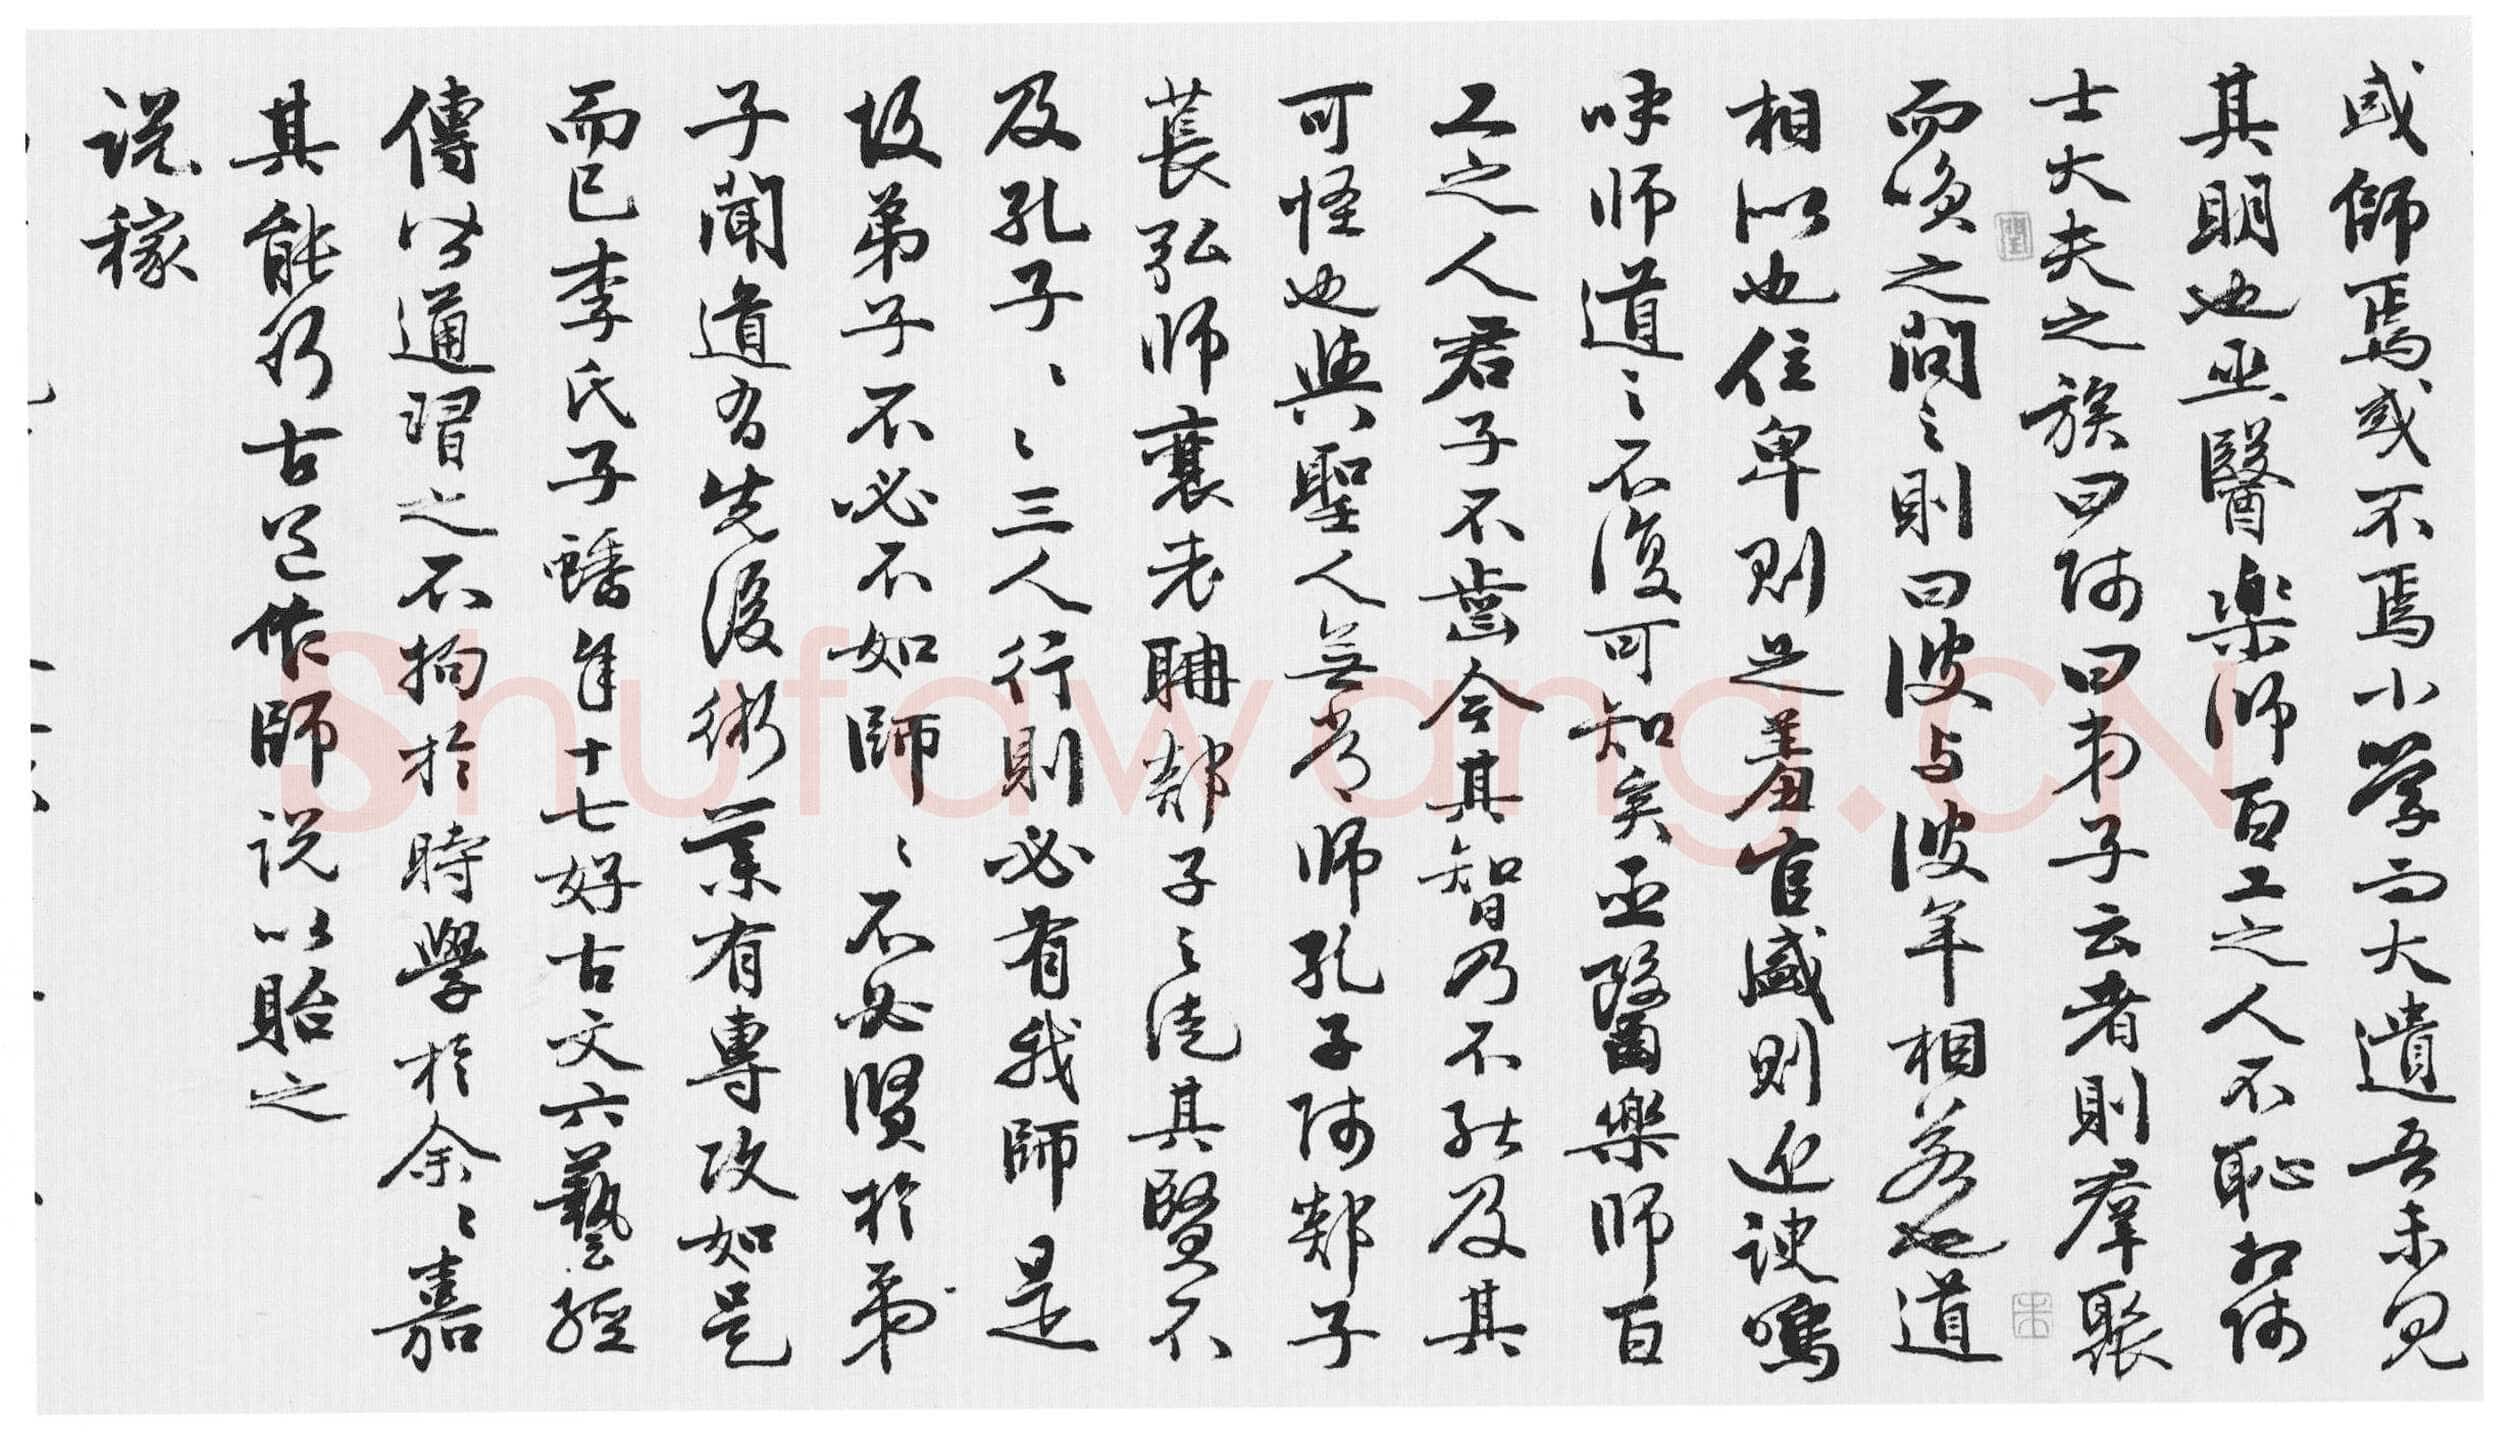 或師焉或不焉小學而大遺吾未見
其明也巫醫樂師百工之人不恥相師
士大夫之族曰師曰弟子云者則群聚
而笑之問〻則曰彼与彼年相若也道
相似也位卑則足羞官盛則近諛嗚
呼師道〻不復可知矣巫醫樂師百
工之人君子不齒今其智乃不能及其
可怪也與聖人無常師孔子師郯子
萇弘師襄老聃郯子〻徒其賢不
及孔子〻〻三人行則必有我師是
故弟子不必不如師〻不必賢於弟
子聞道有先後術業有專攻如是
而已李氏子蟠年十七好古文六藝經
傳皆通習之不拘於時學於余〻嘉
其能行古道作師説以貽之
説稼
Shufawang.CN